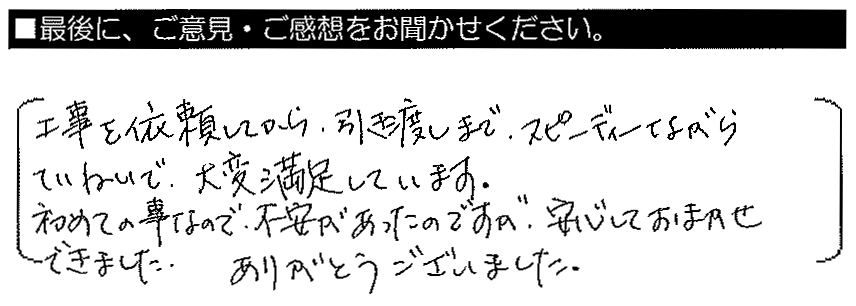 ■最後に、ご意見・ご感想をお聞かせください。
工事を依頼してから、引き渡しまで、スピーディーながら
ていねいで、大変満足しています。
初めての事なので、不安があったのですが、安心しておまかせ
できました。 ありがとうございました。